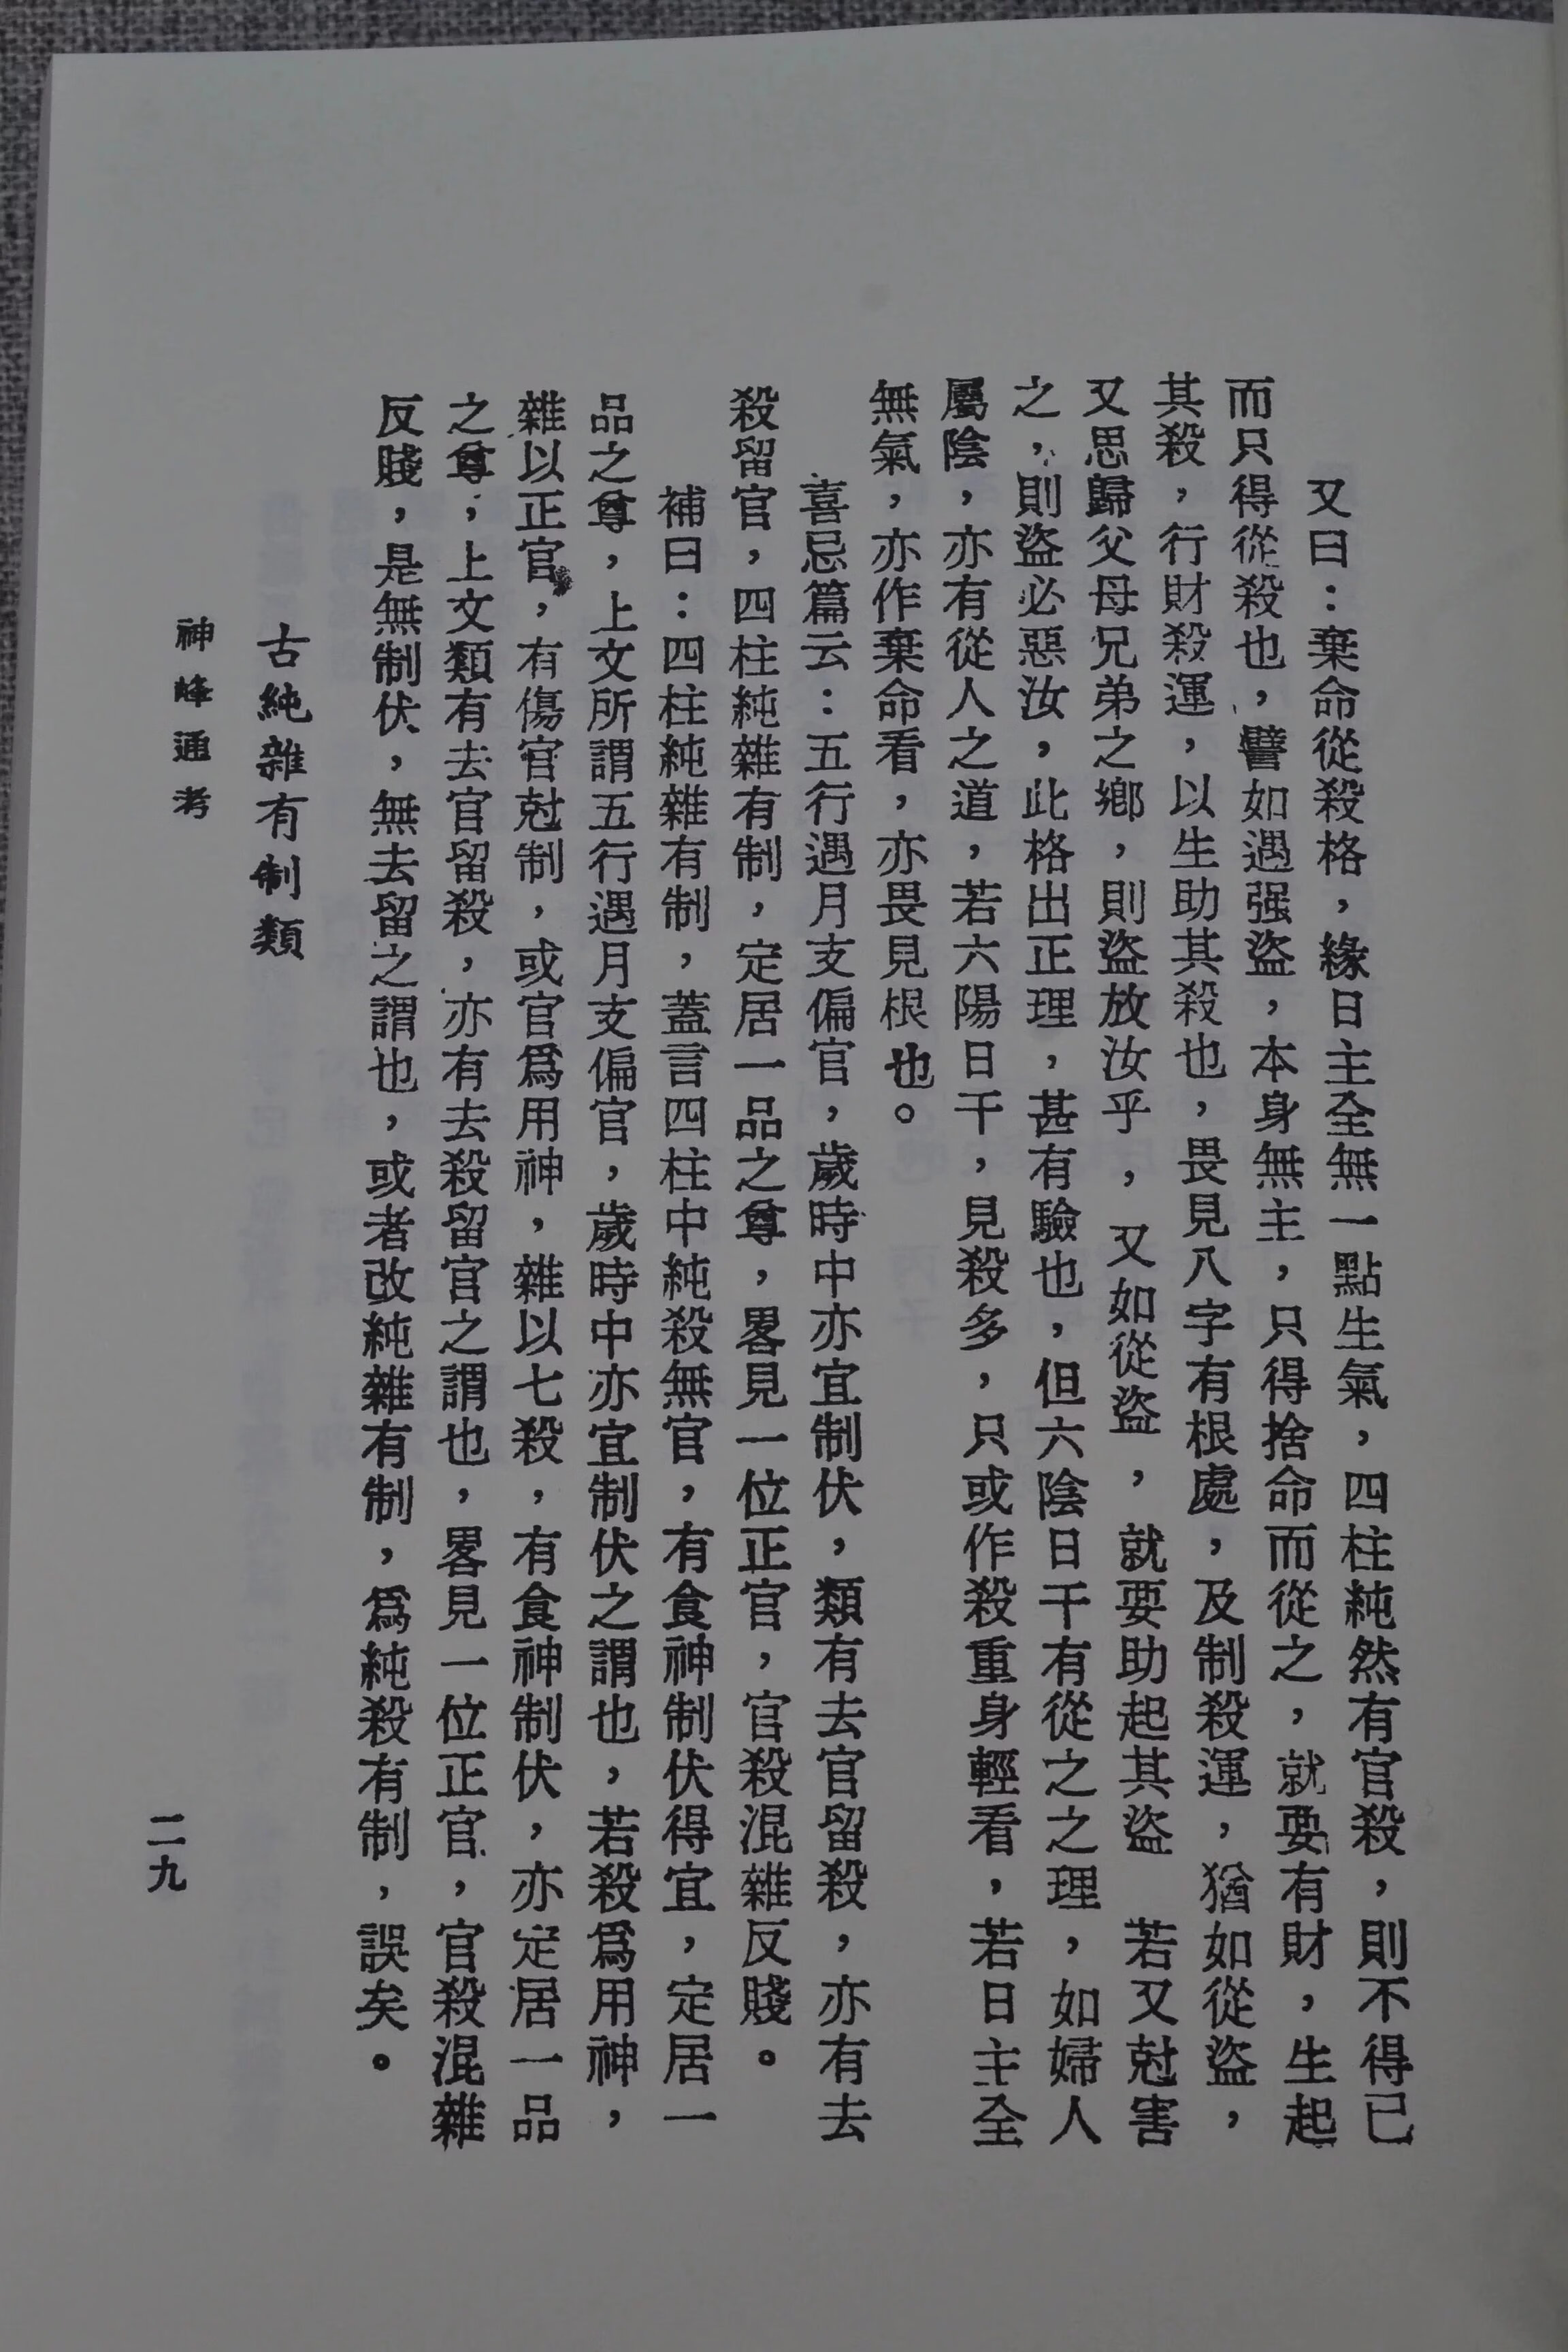 又曰：棄命從殺格，緣日主全無一點生氣，四柱純然有官殺，則不得已
而只得從殺也，譬如遇强盜，本身無主，只得捨命而從之，就要有財，生起
其殺，行財殺運，以生助其殺也，畏見八字有根處，及制殺運，猶如從盜，
又思歸父母兄弟之鄉，則盜放汝乎，又如從盜，就要助起其盜　若又尅害
之，則盜必惡汝，此格出正理，甚有驗也，但六陰日干有從之之理，如婦人
屬陰，亦有從人之道，若六陽日干，見殺多，只或作殺重身輕看，若日主全
無氣，亦作棄命看，亦畏見根也。
喜忌篇云：五行遇月支偏官，歲時中亦宜制伏，類有去官留殺，亦有去
殺留官，四柱純雜有制，定居一品之尊，畧見一位正官，官殺混雜反賤。
補曰：四柱純雜有制，蓋言四柱中純殺無官，有食神制伏得宜，定居一
品之尊，上文所謂五行遇月支偏官，歲時中亦宜制伏之謂也，若殺爲用神，
雜以正官，有傷官尅制，或官爲用神，雜以七殺，有食神制伏，亦定居一品
之尊；上文類有去官留殺，亦有去殺留官之謂也，畧見一位正官，官殺混雜
反賤，是無制伏，無去留之謂也，或者改純雜有制，爲純殺有制，誤矣。
古純雜有制類
神峰通考
二九